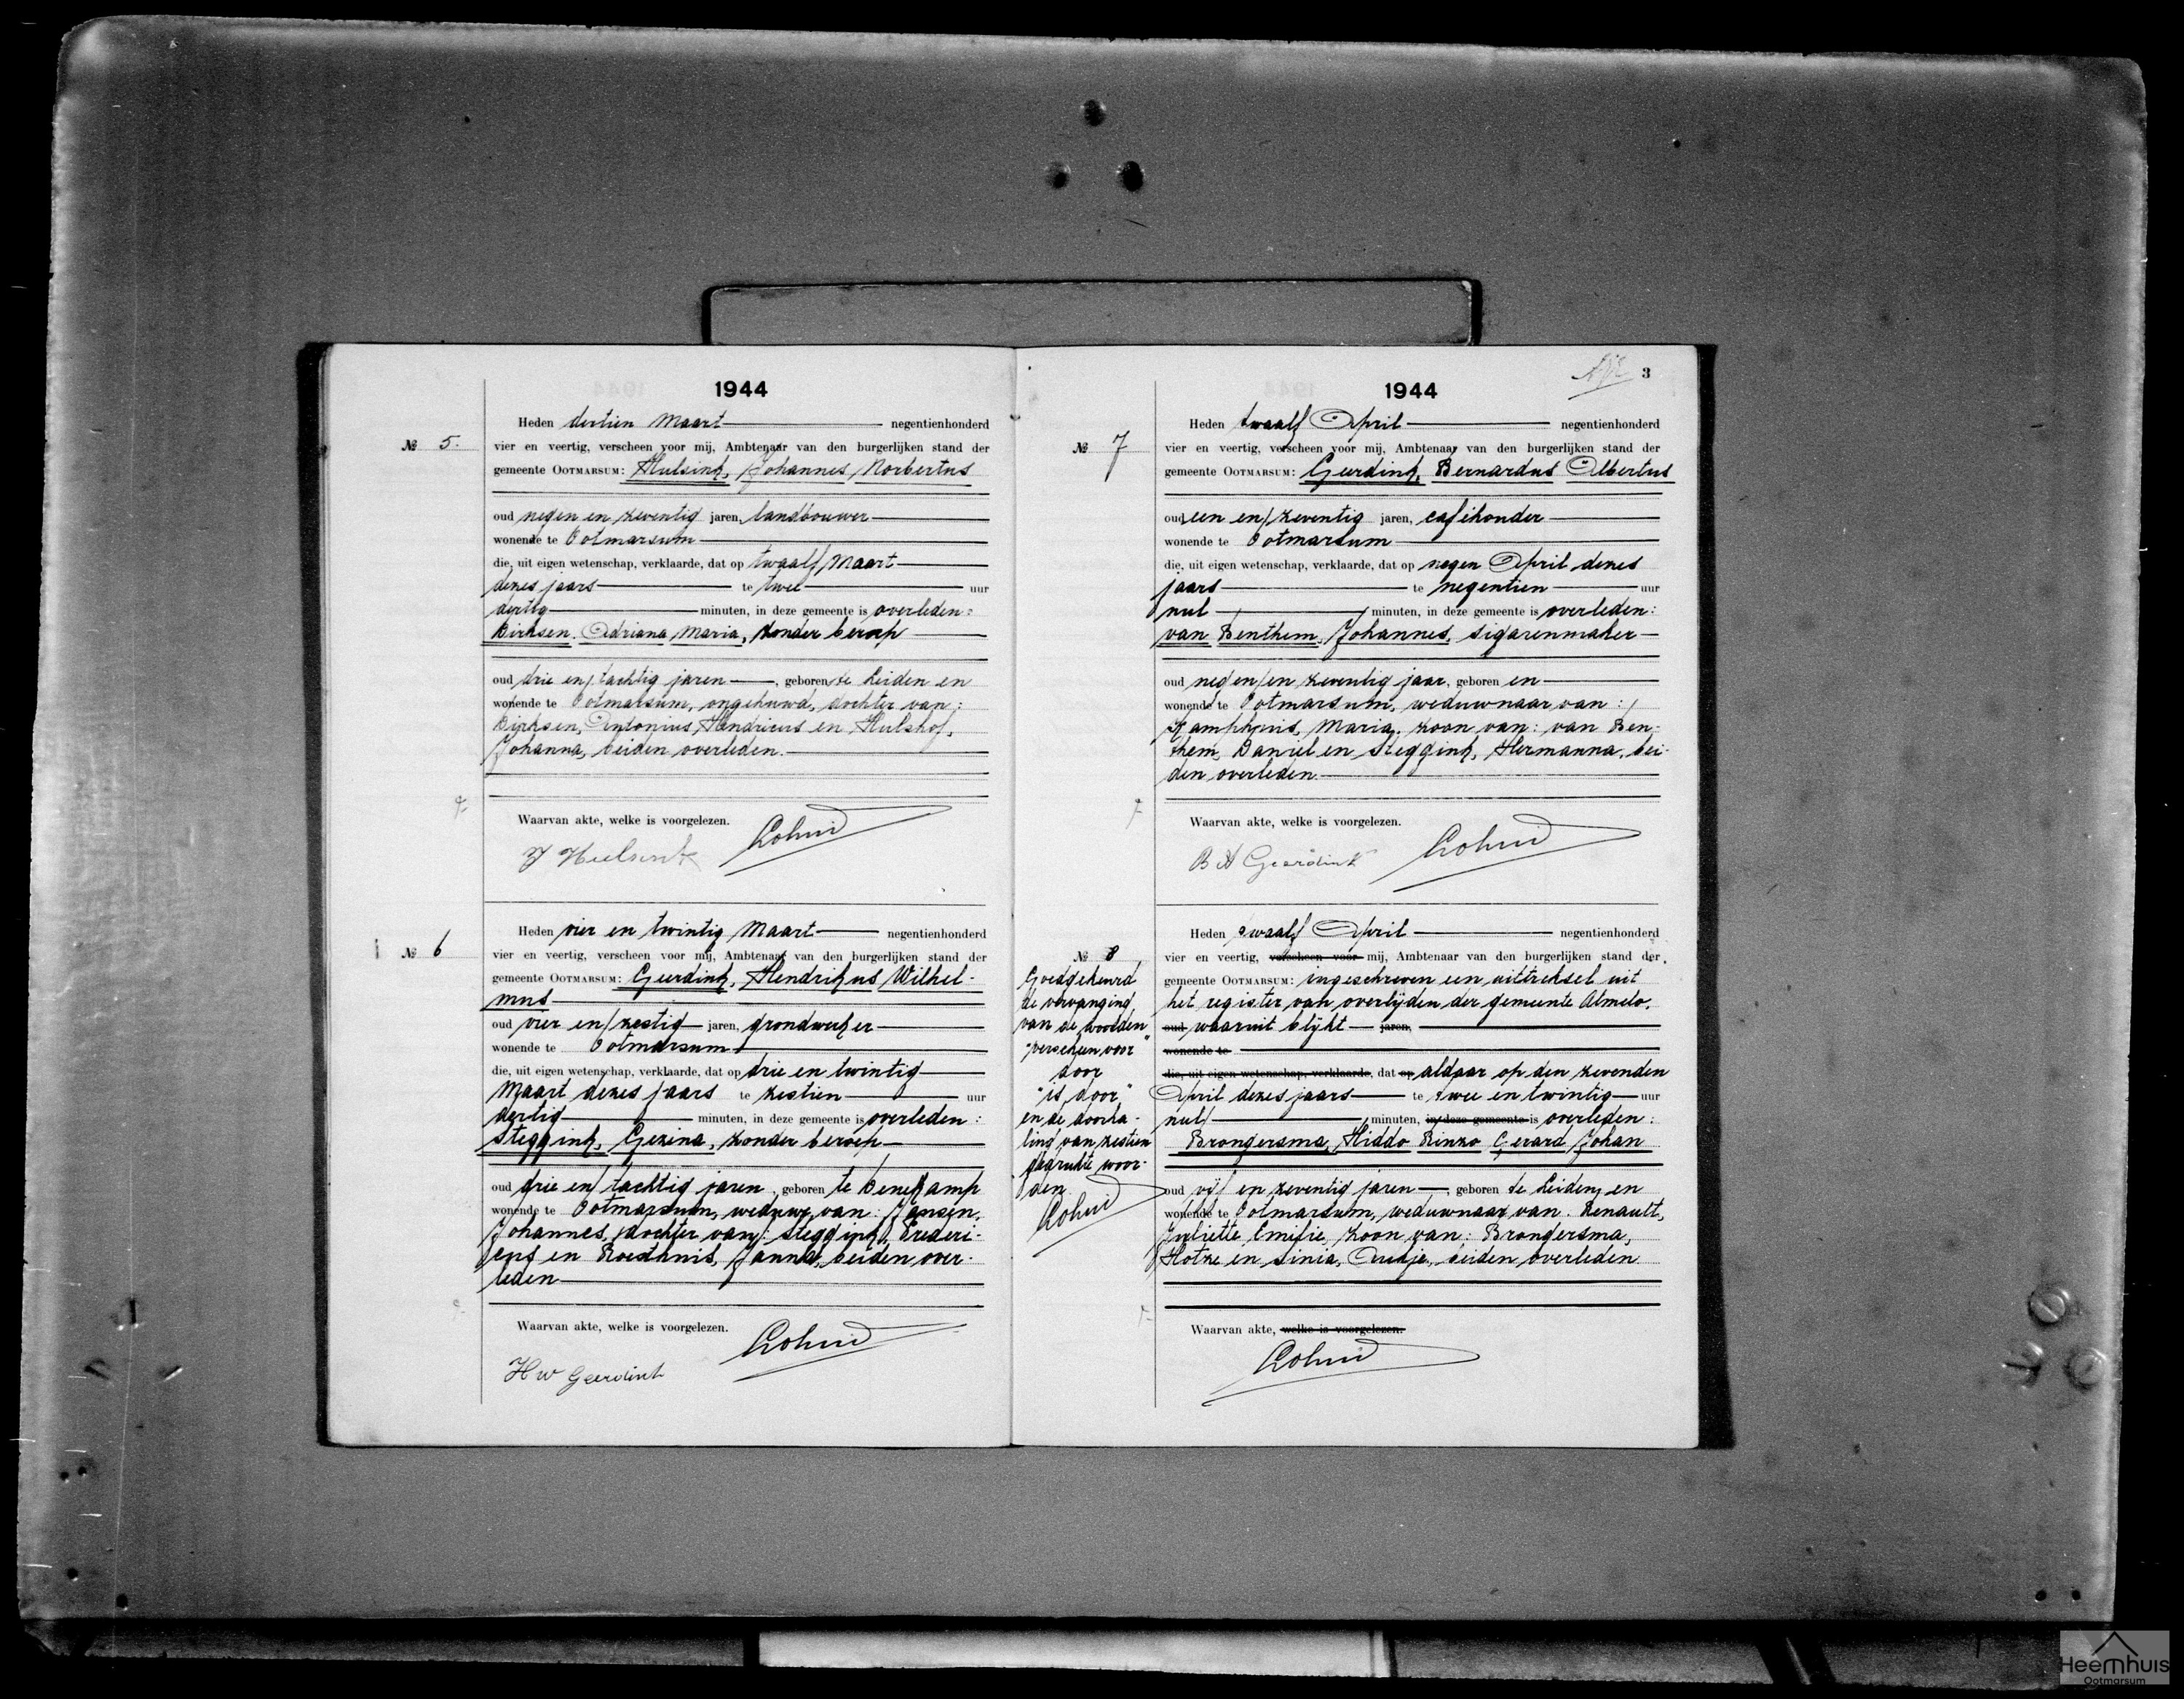 1944
Heden dertien Maart negentienhonderd
№ 5. vier en veertig, verscheen voor mij, Ambtenaar van den burgerlijken stand der
gemeente OOTMARSUM: Hulsink, Johannes Norbertus
oud negen en zeventig jaren, landbouwer
wonende te Ootmarsum
die, uit eigen wetenschap, verklaarde, dat op twaalf Maart
dezes jaars te twee uur
dertig minuten, in deze gemeente is overleden:
Dirksen, Adriana Maria, zonder beroep
oud drie en tachtig jaren, geboren te Leiden en
wonende te Ootmarsum, ongehuwd, dochter van:
Dirksen, Antonius Hendricus en Hulshof,
Johanna, beiden overleden.
Waarvan akte, welke is voorgelezen.
J Hulsink
Heden vier en twintig Maart negentienhonderd
№ 6 vier en veertig, verscheen voor mij, Ambtenaar van den burgerlijken stand der
gemeente OOTMARSUM: Geerdink, Hendrikus Wilhel-
mus
oud vier en zestig jaren, grondwerker
wonende te Ootmarsum
die, uit eigen wetenschap, verklaarde, dat op drie en twintig
Maart dezes jaars te zestien uur
dertig minuten, in deze gemeente is overleden:
Steggink, Gezina, zonder beroep
oud drie en tachtig jaren, geboren te Denekamp
wonende te Ootmarsum, weduwe van: Jansen,
Johannes, dochter van: Steggink, Frederi-
cus en Roesthuis, Janna, beiden over-
leden
Waarvan akte, welke is voorgelezen.
H W Geerdink
3
1944
Heden twaalf April negentienhonderd
№ 7 vier en veertig, verscheen voor mij, Ambtenaar van den burgerlijken stand der
gemeente OOTMARSUM: Geerdink, Bernardus Albertus
oud een en zeventig jaren, caféhouder
wonende te Ootmarsum
die, uit eigen wetenschap, verklaarde, dat op negen April dezes
jaars te negentien uur
nul minuten, in deze gemeente is overleden:
van Benthem, Johannes, sigarenmaker
oud negen en zeventig jaar, geboren en
wonende te Ootmarsum, weduwnaar van:
Kamphuis, Maria, zoon van: van Ben-
them, Daniel en Steggink, Hermanna, bei-
den overleden.
Waarvan akte, welke is voorgelezen.
B A Geerdink
Heden twaalf April negentienhonderd
№ 8 vier en veertig, verscheen voor mij, Ambtenaar van den burgerlijken stand der
gemeente OOTMARSUM: ingeschreven een uittreksel uit
het register van overlijden der gemeente Almelo,
oud waaruit blijkt jaren,
wonende te
die, uit eigen wetenschap, verklaarde, dat op aldaar op den zevenden
April dezes jaars te twee en twintig uur
nul minuten, in deze gemeente is overleden:
Brongersma, Hiddo Rinzo Gerard Johan
oud vijf en zeventig jaren, geboren te Leiden, en
wonende te Ootmarsum, weduwnaar van Renault,
Juliette Emilie, zoon van: Brongersma,
Hotze en Sinia, Aukje, beiden overleden
Waarvan akte, welke is voorgelezen.
Goedgekeurd
de vervanging
van de woorden
"verscheen voor"
door
"is door"
en de doorha-
ling van zestien
gedrukte woor-
den
Heemhuis
Ootmarsum